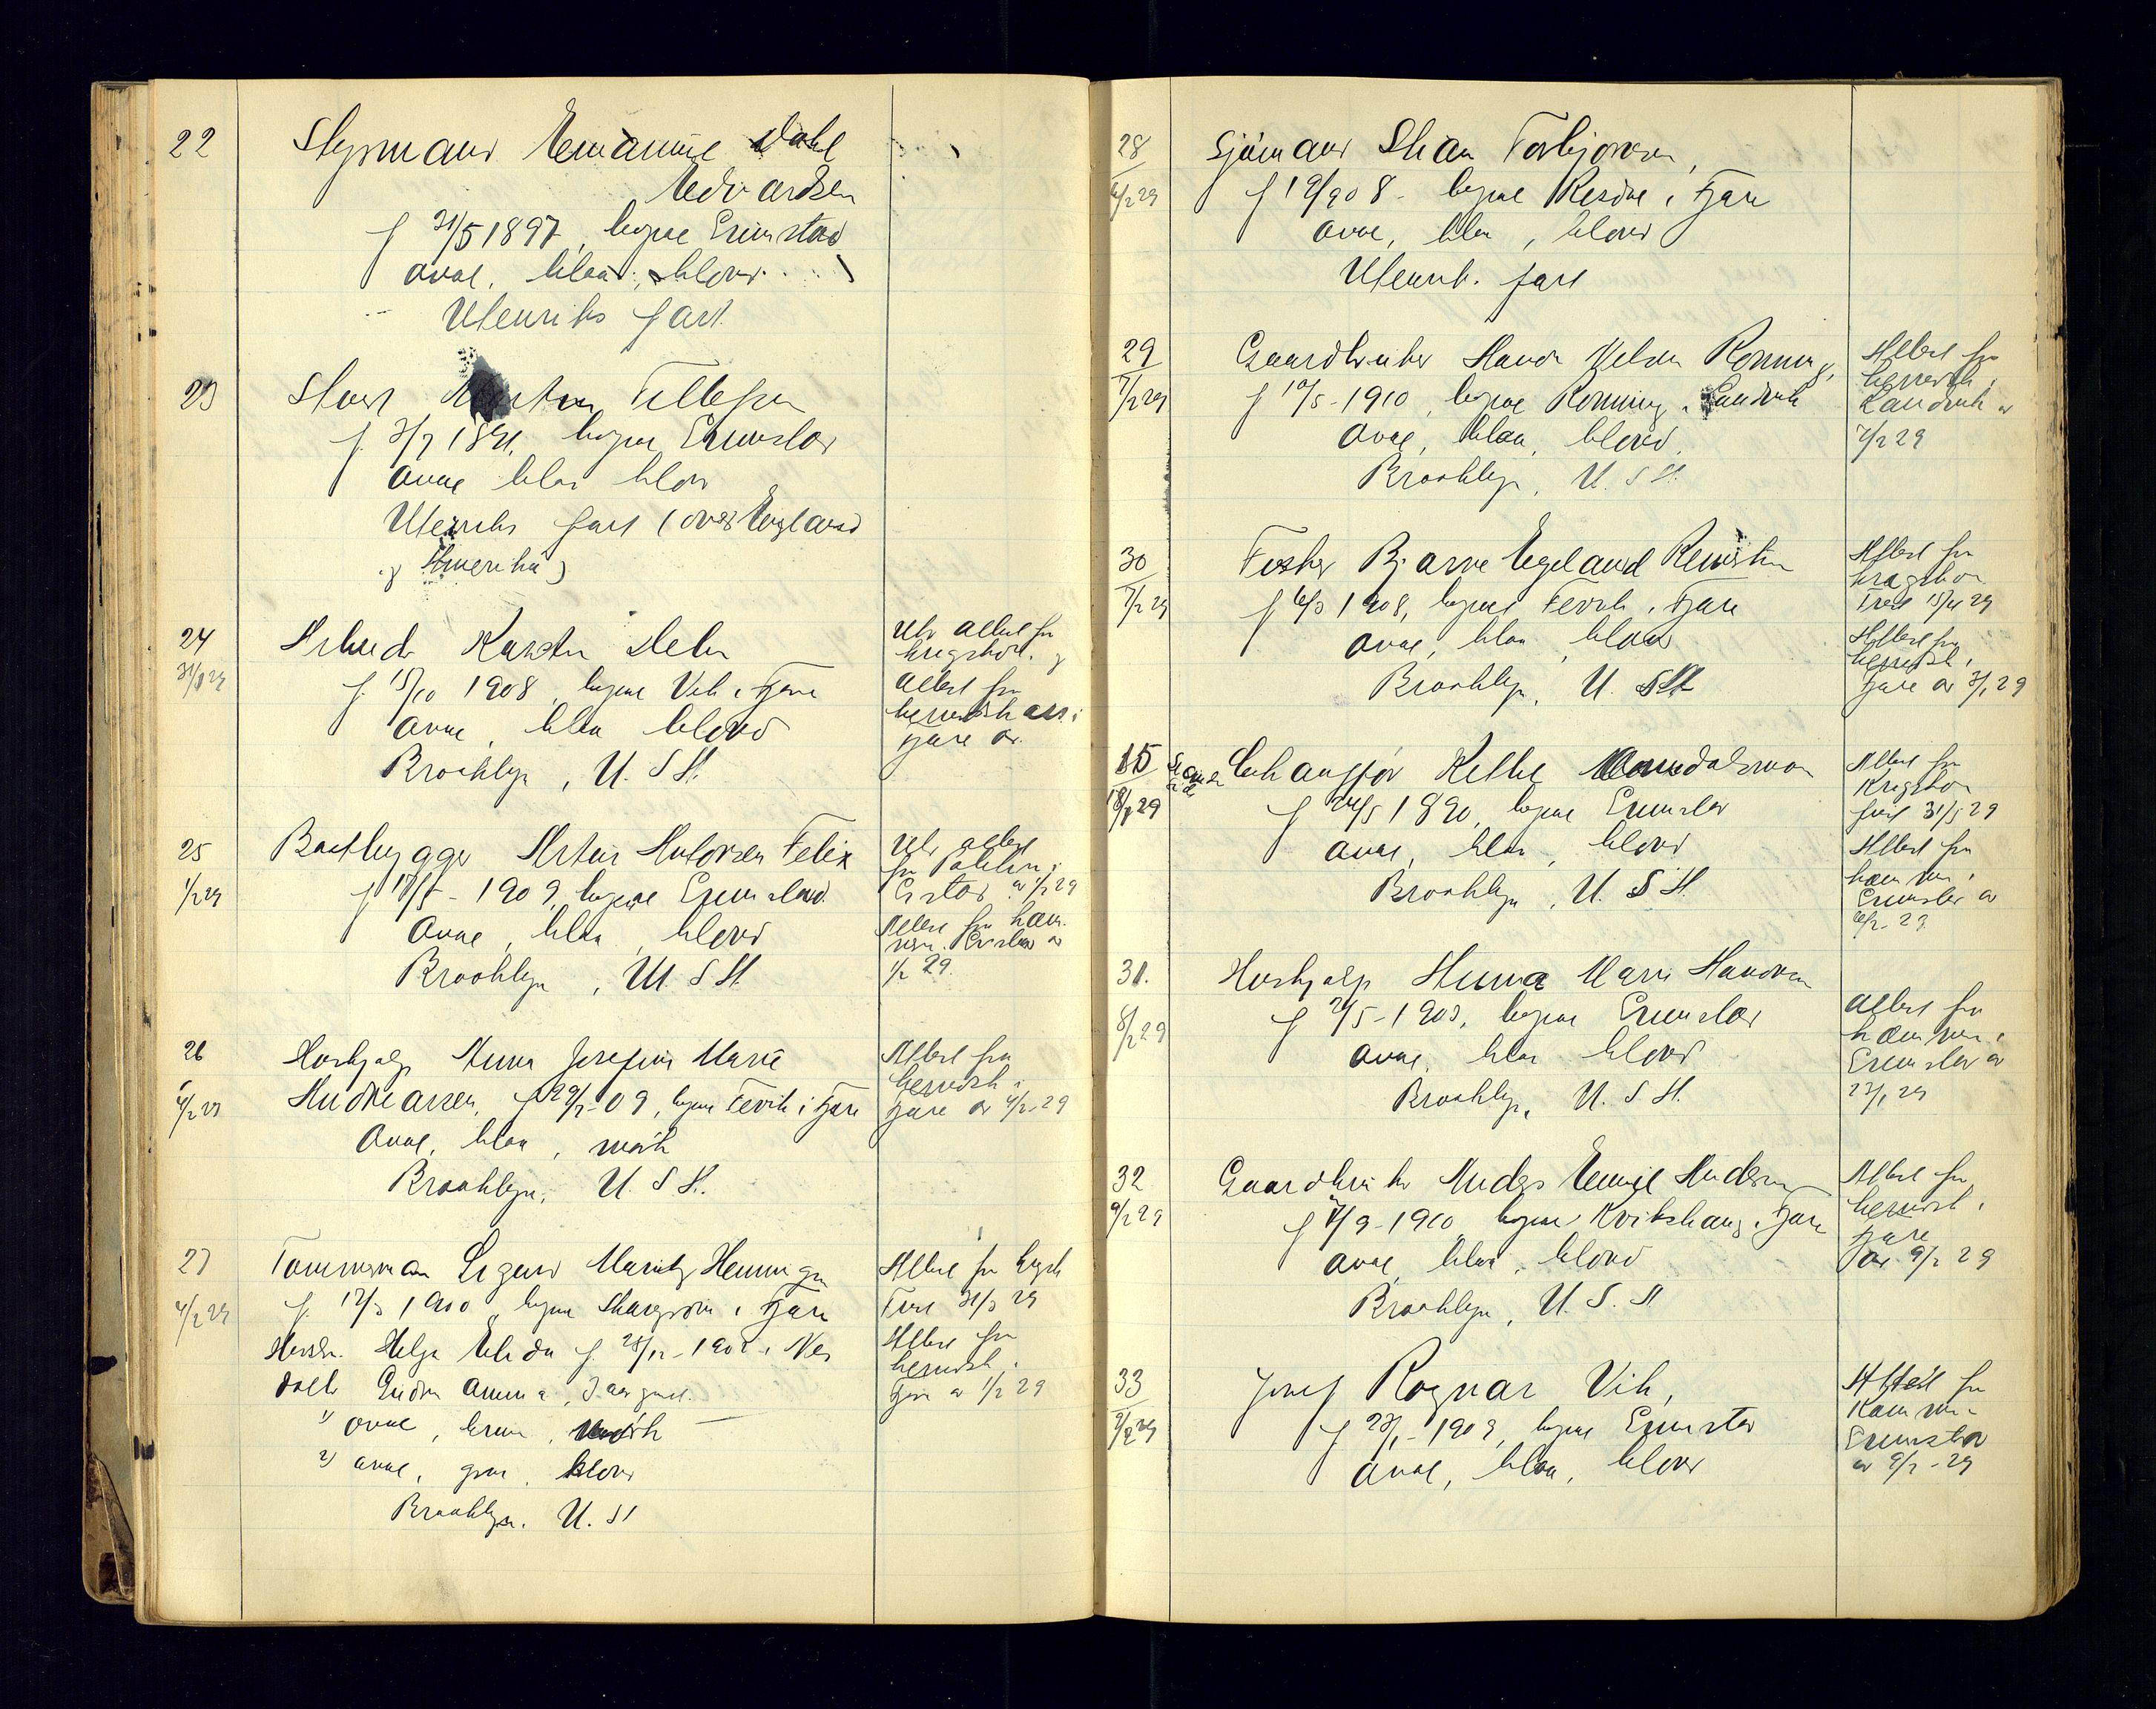 22
Styrmand Emanuel Dahl
Edvardsen
f 31/5 1897, bopæl Grimstad
oval, blaa, blond
Utenriks fart
23
Stuert Tellefsen
f. 1891, bopæl Grimstad
oval blaa blond
Utenriks fart (over England
og Amerika)
24
31/1 29
Arbeider Karsten
f. 15/10 1908, bopæl Vik i Fjære
oval, blaa blond
Brooklyn, U. S A.
Utv attest fra
krigskom. og
attest fra
herredsk ass i
Fjære av
25
1/2 29
Baatbygger Artur Antonsen Felix
f 17/5 - 1909, bopæl Grimstad
oval, blaa, blond
Brooklyn, U. S A.
Utv attest
fra Politiet i
Gr.stad av 1/2 29
Attest fra kæm.
Gr.stad av
1/2 29.
26
4/2 29
Hushjælp Anna Josefine Marie
Andreassen, f 29/7-09, bopæl Fevik i Fjære
Oval, blaa, mörk
Brooklyn, U. S A.
Attest fra
herredsk i
Fjære av 4/2-29
27
4/2 29
Tømmermann Sigurd Maritz Henningsen
f. 17/3 1900, bopæl i Fjære
Hustru Helga Elida f. 25/12-1902 i Nes
datter Gudrun Amma, 3 aar gml.
1) oval, brun, mörk
2) oval, graa, blond
Brooklyn. U. S A
Attest fra krigsk
Frist 31/3 29
Attest fra
herredsk i
Fjære av 1/2 29
28
6/2 29
Sjömand Stian Torbjörnsen,
f 19/9 08 - bopæl Resdal i Fjære
oval, blaa, blond
Utenrik. fart
29
7/2 29
Gaardbruker Nelsen Rønning,
f 10/5-1910, bopæl Rønning, Landvik
oval, blaa, blond,
Brooklyn, U. S A.
Attest fra
herredsk i
Landvik av
7/2 29
30
7/2 29
Fisker Bjarne Egeland Reinertsen
f 6/3 1908, bopæl Fevik i Fjære
oval, blaa, blond
Brooklyn, U. S A
Attest fra
krigskom
Frist 15/4 29
Attest fra
herredsk i
Fjære av 3/1 29
15
Kelly
f 24/5 1890, bopæl Grimstad
oval, blaa, blond
Brooklyn, U. S A.
Attest fra
Krigskom
frist 31/5 29
Attest fra
kæmner i
Grimstad av
6/2-29
31.
8/2 29
Hushjælp Anna Marie
f 21/5-1903, bopæl Grimstad
oval, blaa blond
Brooklyn, U. S A.
Attest fra
kæmner i
Grimstad av
23/1 29
32
9/2 29
Gaardbruker Anders Emil Andersen
f 4/9-1910, bopæl Kvikshaug i Fjære
oval, blaa, blond
Brooklyn, U. S. A
Attest fra
herredsk i
Fjære
av 9/2 29
33
9/2 29
Josef Ragnar Vik,
f 23/1-1903, bopæl Grimstad
oval, blaa, blond
Attest fra
Kæmner i
Grimstad
av 9/2-29